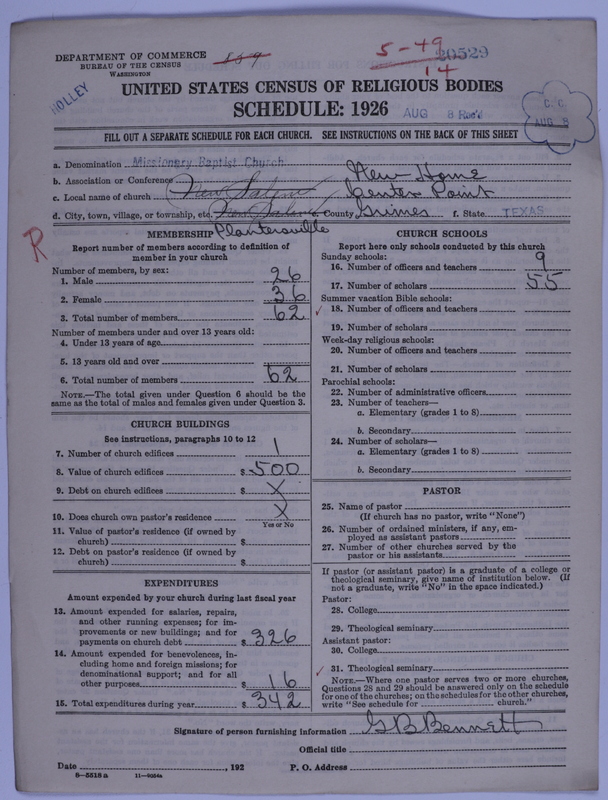 DEPARTMENT OF COMMERCE
BUREAU OF THE CENSUS
WASHINGTON
559
5-49
14
20529
HOLLEY
UNITED STATES CENSUS OF RELIGIOUS BODIES
SCHEDULE: 1926
AUG 8 Rec'd
C.C.
AUG 8
FILL OUT A SEPARATE SCHEDULE FOR EACH CHURCH. SEE INSTRUCTIONS ON THE BACK OF THIS SHEET
a. Denomination Missionary Baptist Church
b. Association or Conference New Home
c. Local name of church New Salem Center Point
d. City, town, village, or township, etc. New Salem e. County Grimes f. State TEXAS
Plantersville
R
MEMBERSHIP
Report number of members according to definition of
member in your church
Number of members, by sex:
1. Male 26
2. Female 36
3. Total number of members 62
Number of members under and over 13 years old:
4. Under 13 years of age
5. 13 years old and over
6. Total number of members 62
NOTE.—The total given under Question 6 should be
the same as the total of males and females given under Question 3.
CHURCH BUILDINGS
See instructions, paragraphs 10 to 12
7. Number of church edifices 1
8. Value of church edifices $ 500
9. Debt on church edifices $ X
10. Does church own pastor's residence X
Yes or No
11. Value of pastor's residence (if owned by
church) $
12. Debt on pastor's residence (if owned by
church) $
EXPENDITURES
Amount expended by your church during last fiscal year
13. Amount expended for salaries, repairs,
and other running expenses; for im-
provements or new buildings; and for
payments on church debt $ 326
14. Amount expended for benevolences, in-
cluding home and foreign missions; for
denominational support; and for all
other purposes $ 16
15. Total expenditures during year $ 342
CHURCH SCHOOLS
Report here only schools conducted by this church
Sunday schools:
16. Number of officers and teachers 9
17. Number of scholars 55
Summer vacation Bible schools:
18. Number of officers and teachers
19. Number of scholars
Week-day religious schools:
20. Number of officers and teachers
21. Number of scholars
Parochial schools:
22. Number of administrative officers
23. Number of teachers—
a. Elementary (grades 1 to 8)
b. Secondary
24. Number of scholars—
a. Elementary (grades 1 to 8)
b. Secondary
PASTOR
25. Name of pastor
(If church has no pastor, write "None")
26. Number of ordained ministers, if any, em-
ployed as assistant pastors
27. Number of other churches served by the
pastor or his assistants
If pastor (or assistant pastor) is a graduate of a college or
theological seminary, give name of institution below. (If
not a graduate, write "No" in the space indicated.)
Pastor:
28. College
29. Theological seminary
Assistant pastor:
30. College
31. Theological seminary
NOTE.—Where one pastor serves two or more churches,
Questions 28 and 29 should be answered only on the schedule
for one of the churches; on the schedules for the other churches,
write "See schedule for church."
Signature of person furnishing information G B Bennett
Official title
Date , 192 P. O. Address
8—5518 a 11—9264a